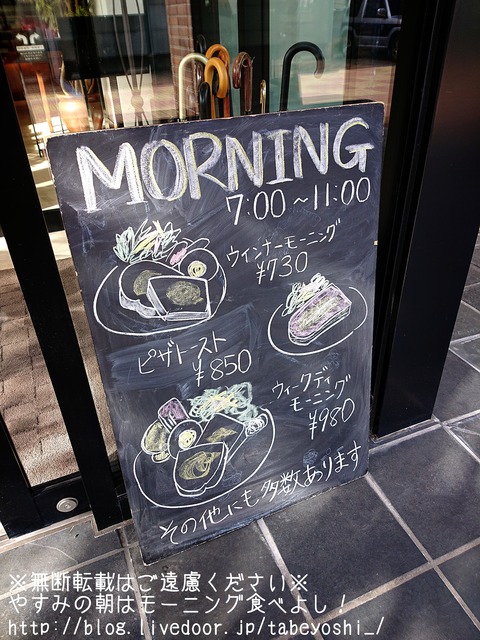 MORNING
7:00~11:00
ウインナーモーニング
¥730
ピザトースト
¥850
ウィークディ
モーニング
¥980
その他にも多数あります
※無断転載はご遠慮ください※
やすみの朝はモーニング食べよし！
http://blog.livedoor.jp/tabeyoshi_/